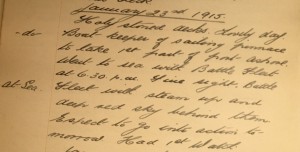 January 23rd 1915.
Holy stoned decks. Lovely day.
-do- Boat keeper of sailing pinnace
to take 1st part of first ashore.
Went to sea with Battle Fleet
at 6.30 p.m. Fine sight. Battle
At Sea. Fleet with steam up and
deep red sky behind them
Expect to go into action to
morrow. Had 1st Watch